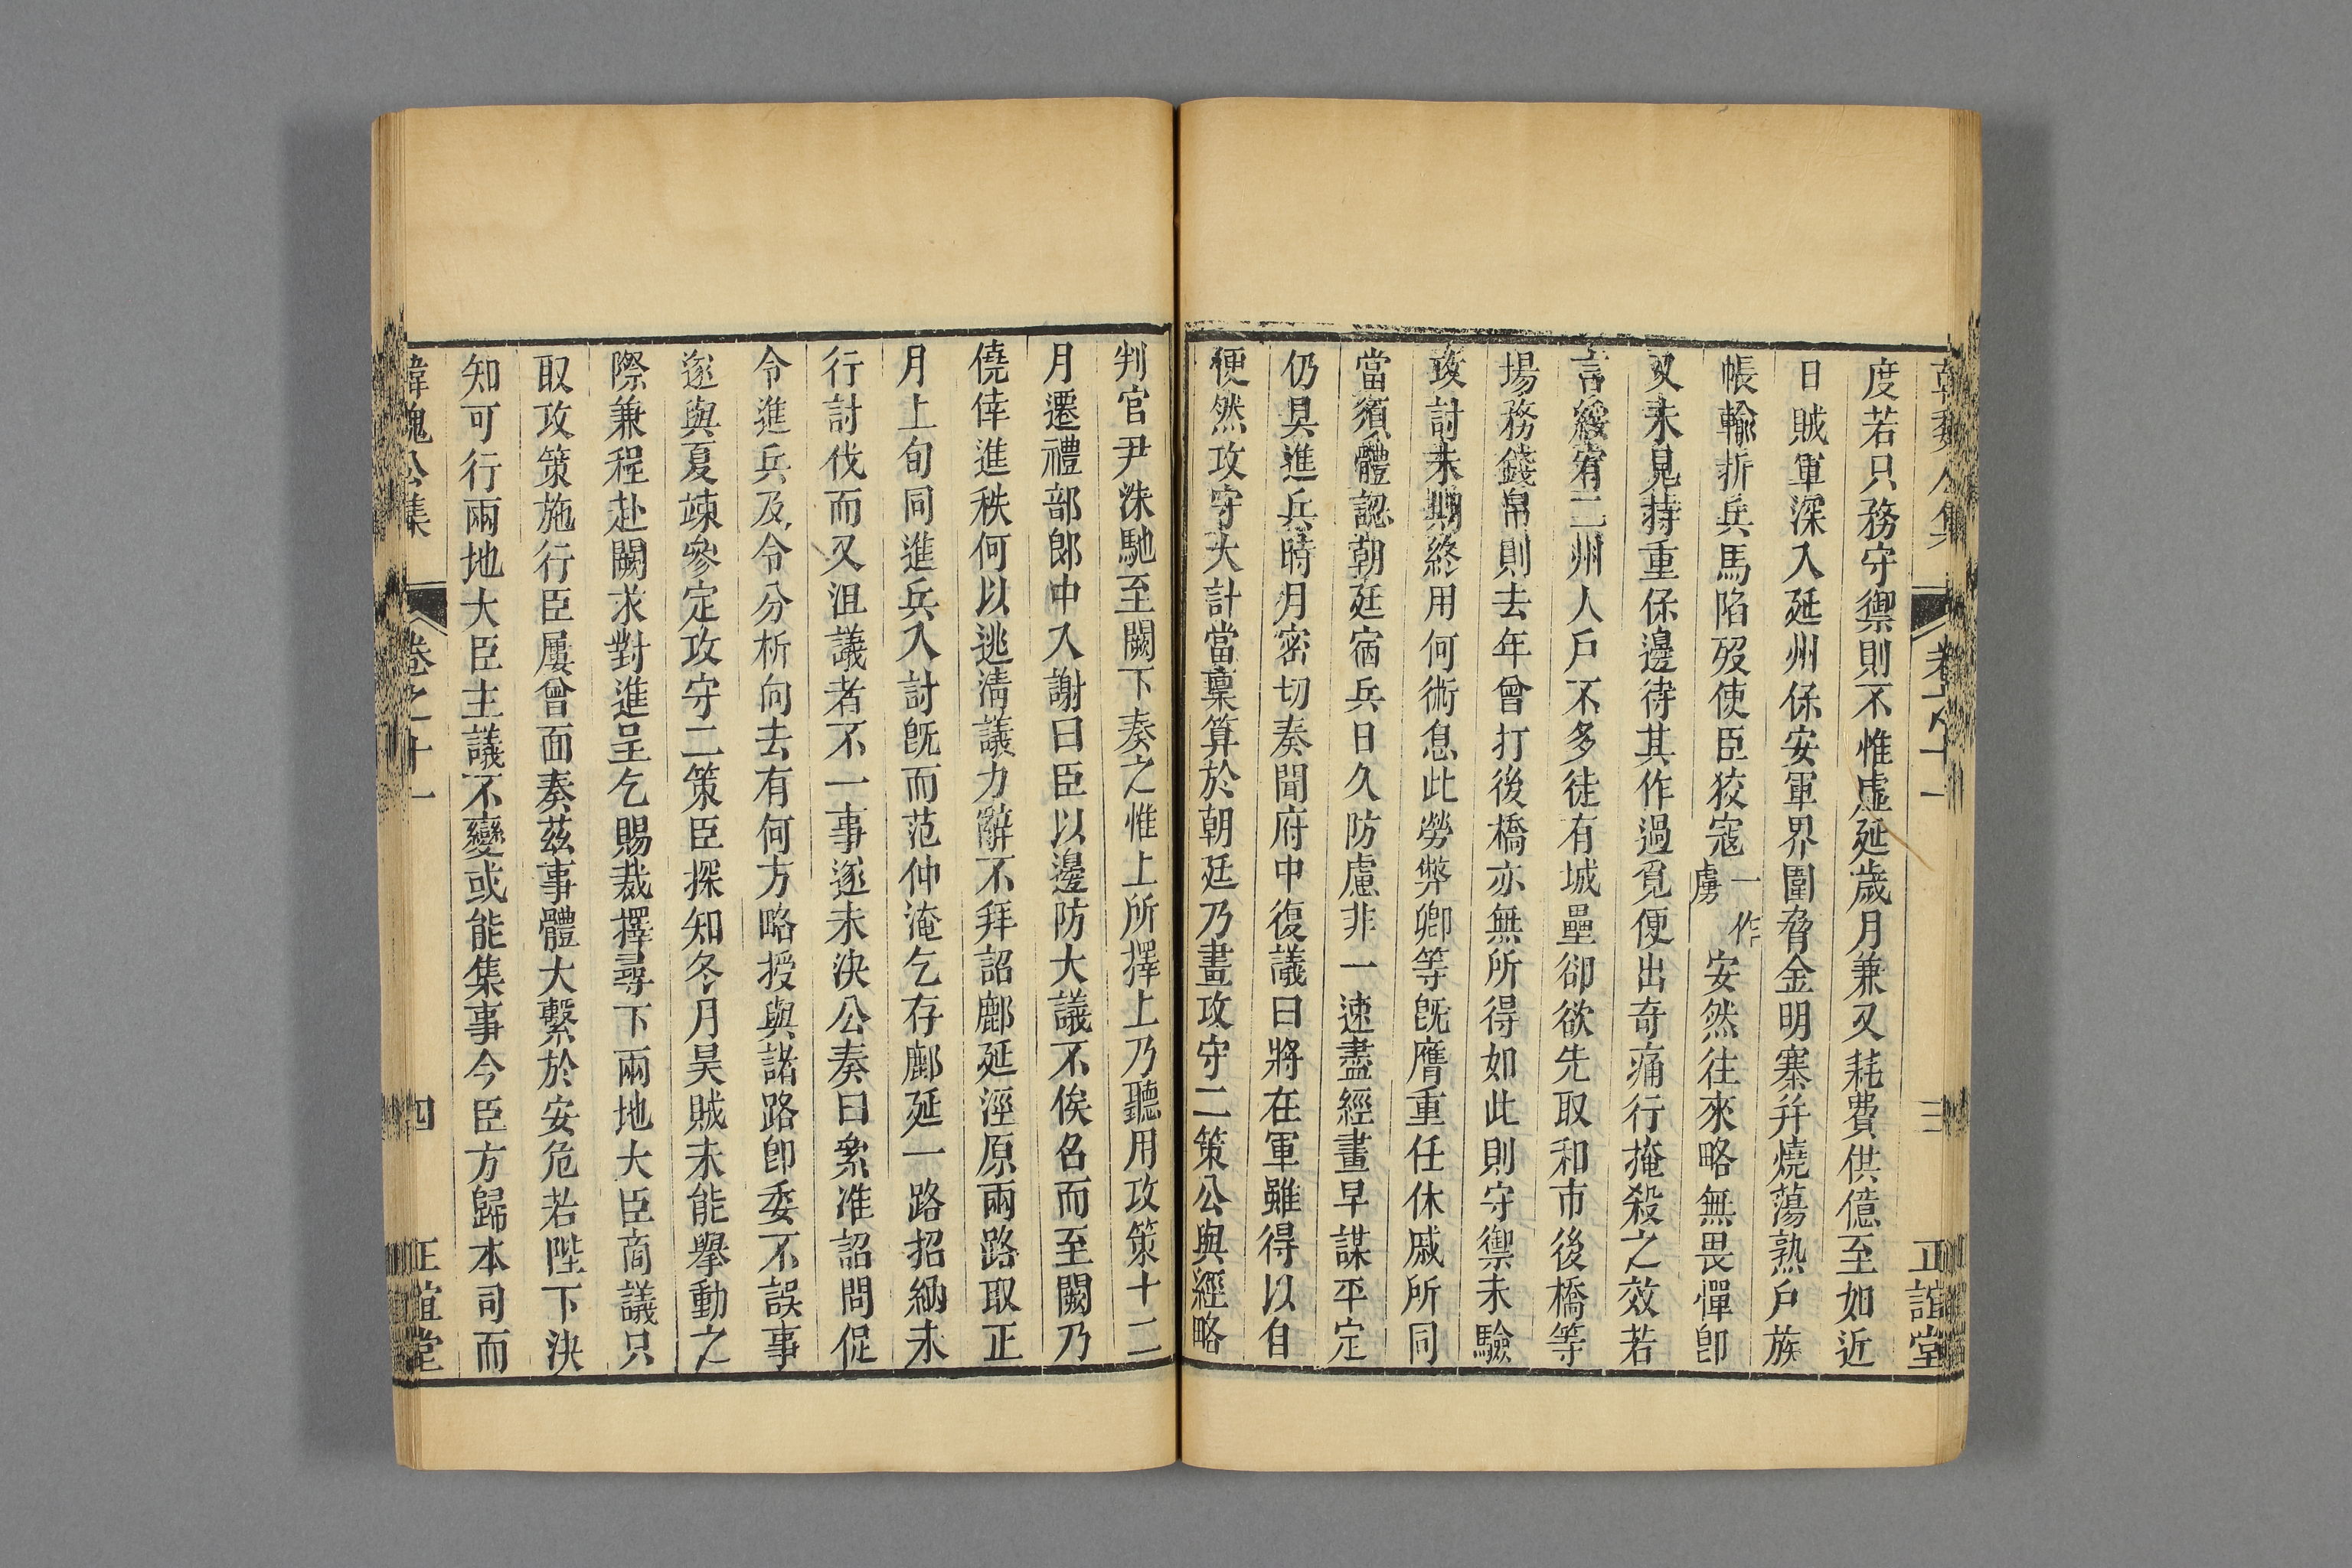 韓魏公集 卷之十一 三 正誼堂
度若只務守禦則不惟虛延歲月兼又耗費供億至如近
日賊軍深入延州保安軍界圍脅金明寨并燒蕩熟戶族
帳輸折兵馬陷歿使臣狡寇一作虜安然往來略無畏憚卽
又未見持重保邊待其作過覓便出奇痛行掩殺之效若
言綏宥二州人戶不多徒有城壘卻欲先取和市後橋等
場務錢帛則去年曾打後橋亦無所得如此則守禦未驗
攻討未期終用何術息此勞弊卿等旣膺重任休戚所同
當須體認朝廷宿兵日久防慮非一速盡經畫早謀平定
仍具進兵時月密切奏聞府中復議曰將在軍雖得以自
便然攻守大計當稟算於朝廷乃畫攻守二策公與經略
判官尹洙馳至闕下奏之惟上所擇上乃聽用攻策十二
月遷禮部郎中入謝曰臣以邊防大議不俟名而至闕乃
僥倖進秩何以逃淸議力辭不拜詔鄜延涇原兩路取正
月上旬同進兵入討旣而范仲淹乞存鄜延一路招納未
行討伐而又沮議者不一事遂未決公奏曰㬰准詔問促
令進兵及令分析向去有何方略授與諸路卽委不誤事
遂與夏竦參定攻守二策臣探知冬月昊賊未能擧動之
際兼程赴闕求對進呈乞賜裁擇尋下兩地大臣商議只
取攻策施行臣屢曾面奏茲事體大繫於安危若陛下決
知可行兩地大臣主議不變或能集事今臣方歸本司而
韓魏公集 卷之十一 四 正誼堂